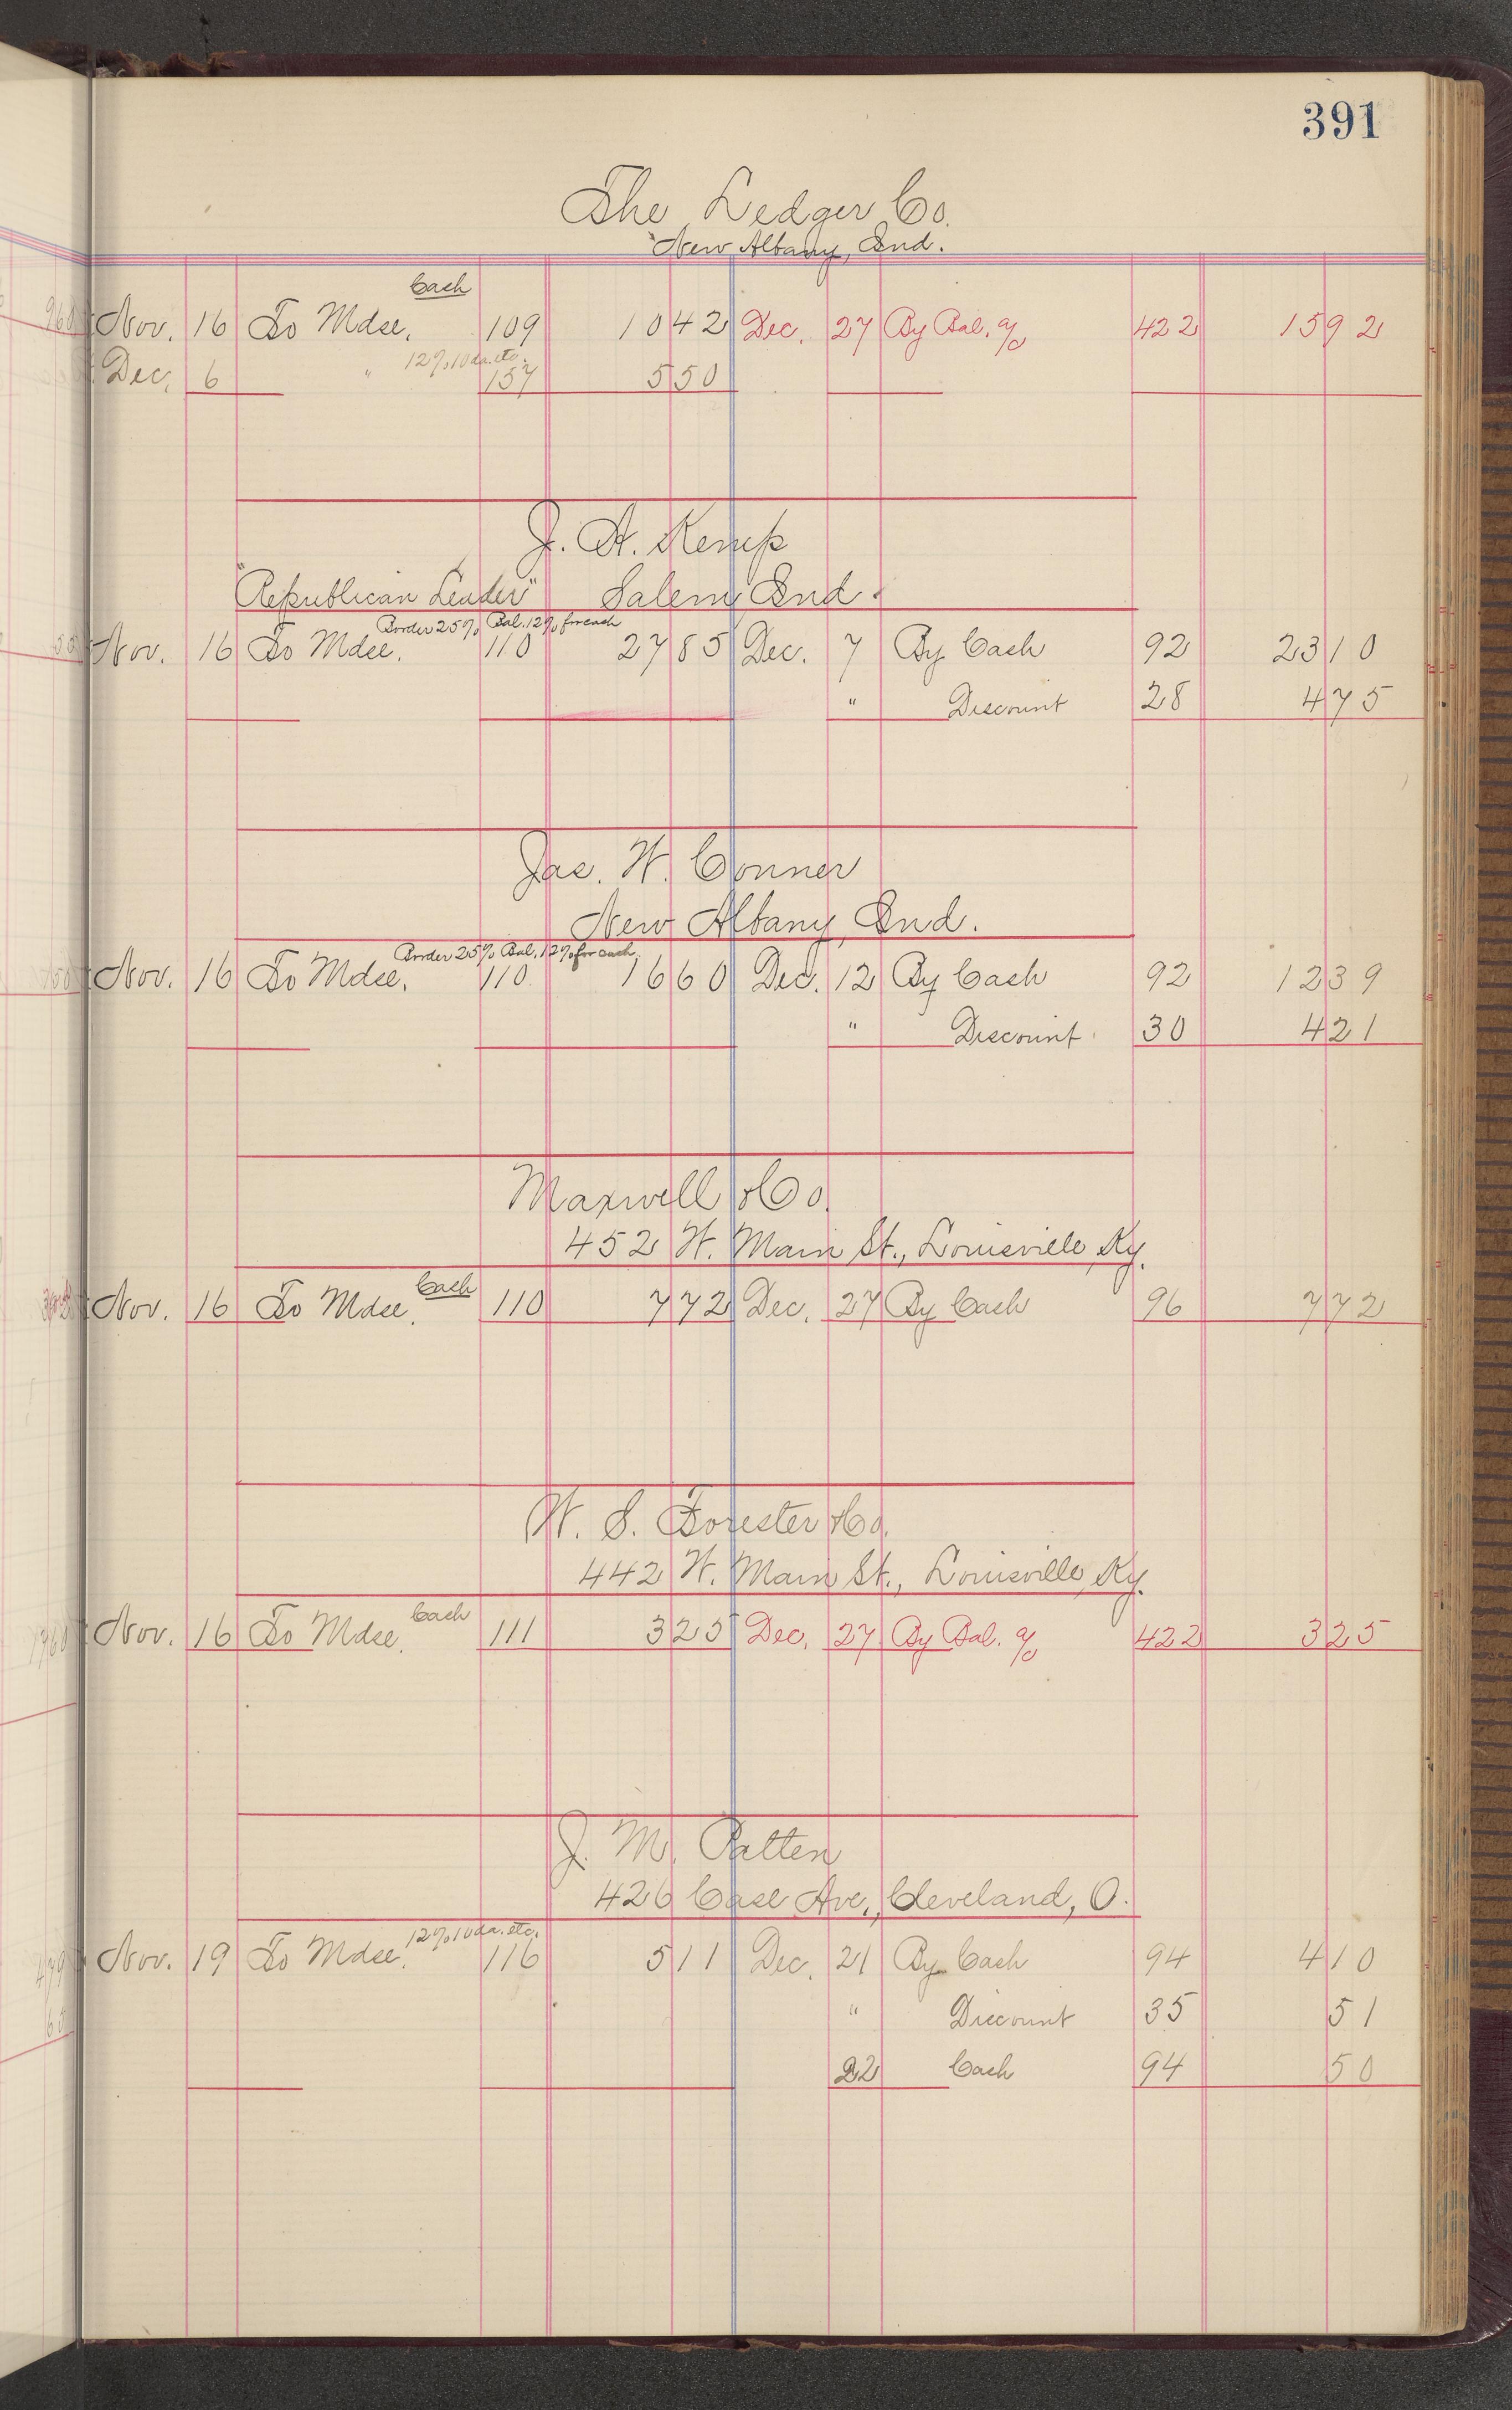 391
The Ledger Co.
New Albany, Ind.
Cash
Nov. 16 To Mdse. 109 10 42 Dec. 27 By Bal. a/c 422 15 92
12% 10 da. etc.
Dec. 6 " 157 5 50
J. A. Kemp
"Republican Leader" Salem Ind.
Border 25% Bal. 12% for cash
Nov. 16 To Mdse. 110 27 85 Dec. 7 By Cash 92 23 10
" Discount 28 4 75
Jas. W. Conner
New Albany, Ind.
Border 25% Bal. 12% for cash
Nov. 16 To Mdse. 110 16 60 Dec. 12 By Cash 92 12 39
" Discount 30 4 21
Maxwell & Co.
452 W. Main St., Louisville, Ky.
Cash
Nov. 16 To Mdse. 110 7 72 Dec. 27 By Cash 96 7 72
W. S. Forester & Co.
442 W. Main St., Louisville, Ky.
Cash
Nov. 16 To Mdse. 111 3 25 Dec. 27 By Bal. a/c 422 3 25
J. M. Patten
426 Case Ave., Cleveland, O.
12% 10 da. etc.
Nov. 19 To Mdse. 116 5 11 Dec. 21 By Cash 94 4 10
" Discount 35 51
22 Cash 94 50